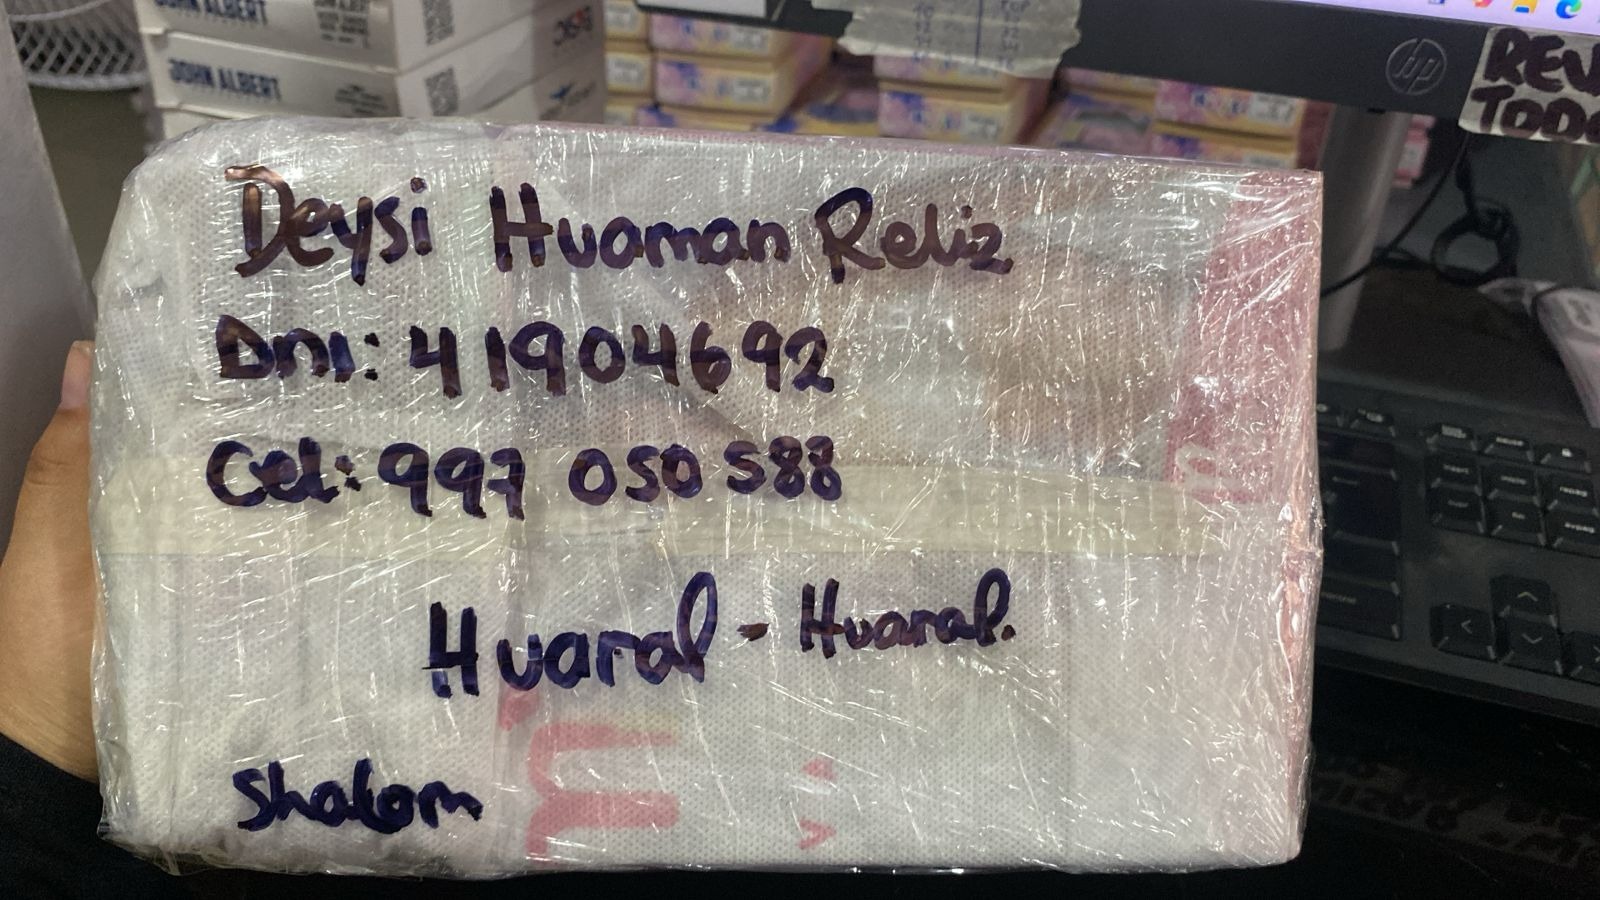 JOHN ALBERT
JOHN ALBERT
hp
REV
TODO
Deysi Huaman Reliz
Dni: 41904692
Cel: 997 050 588
Huaral - Huaral.
Shalom